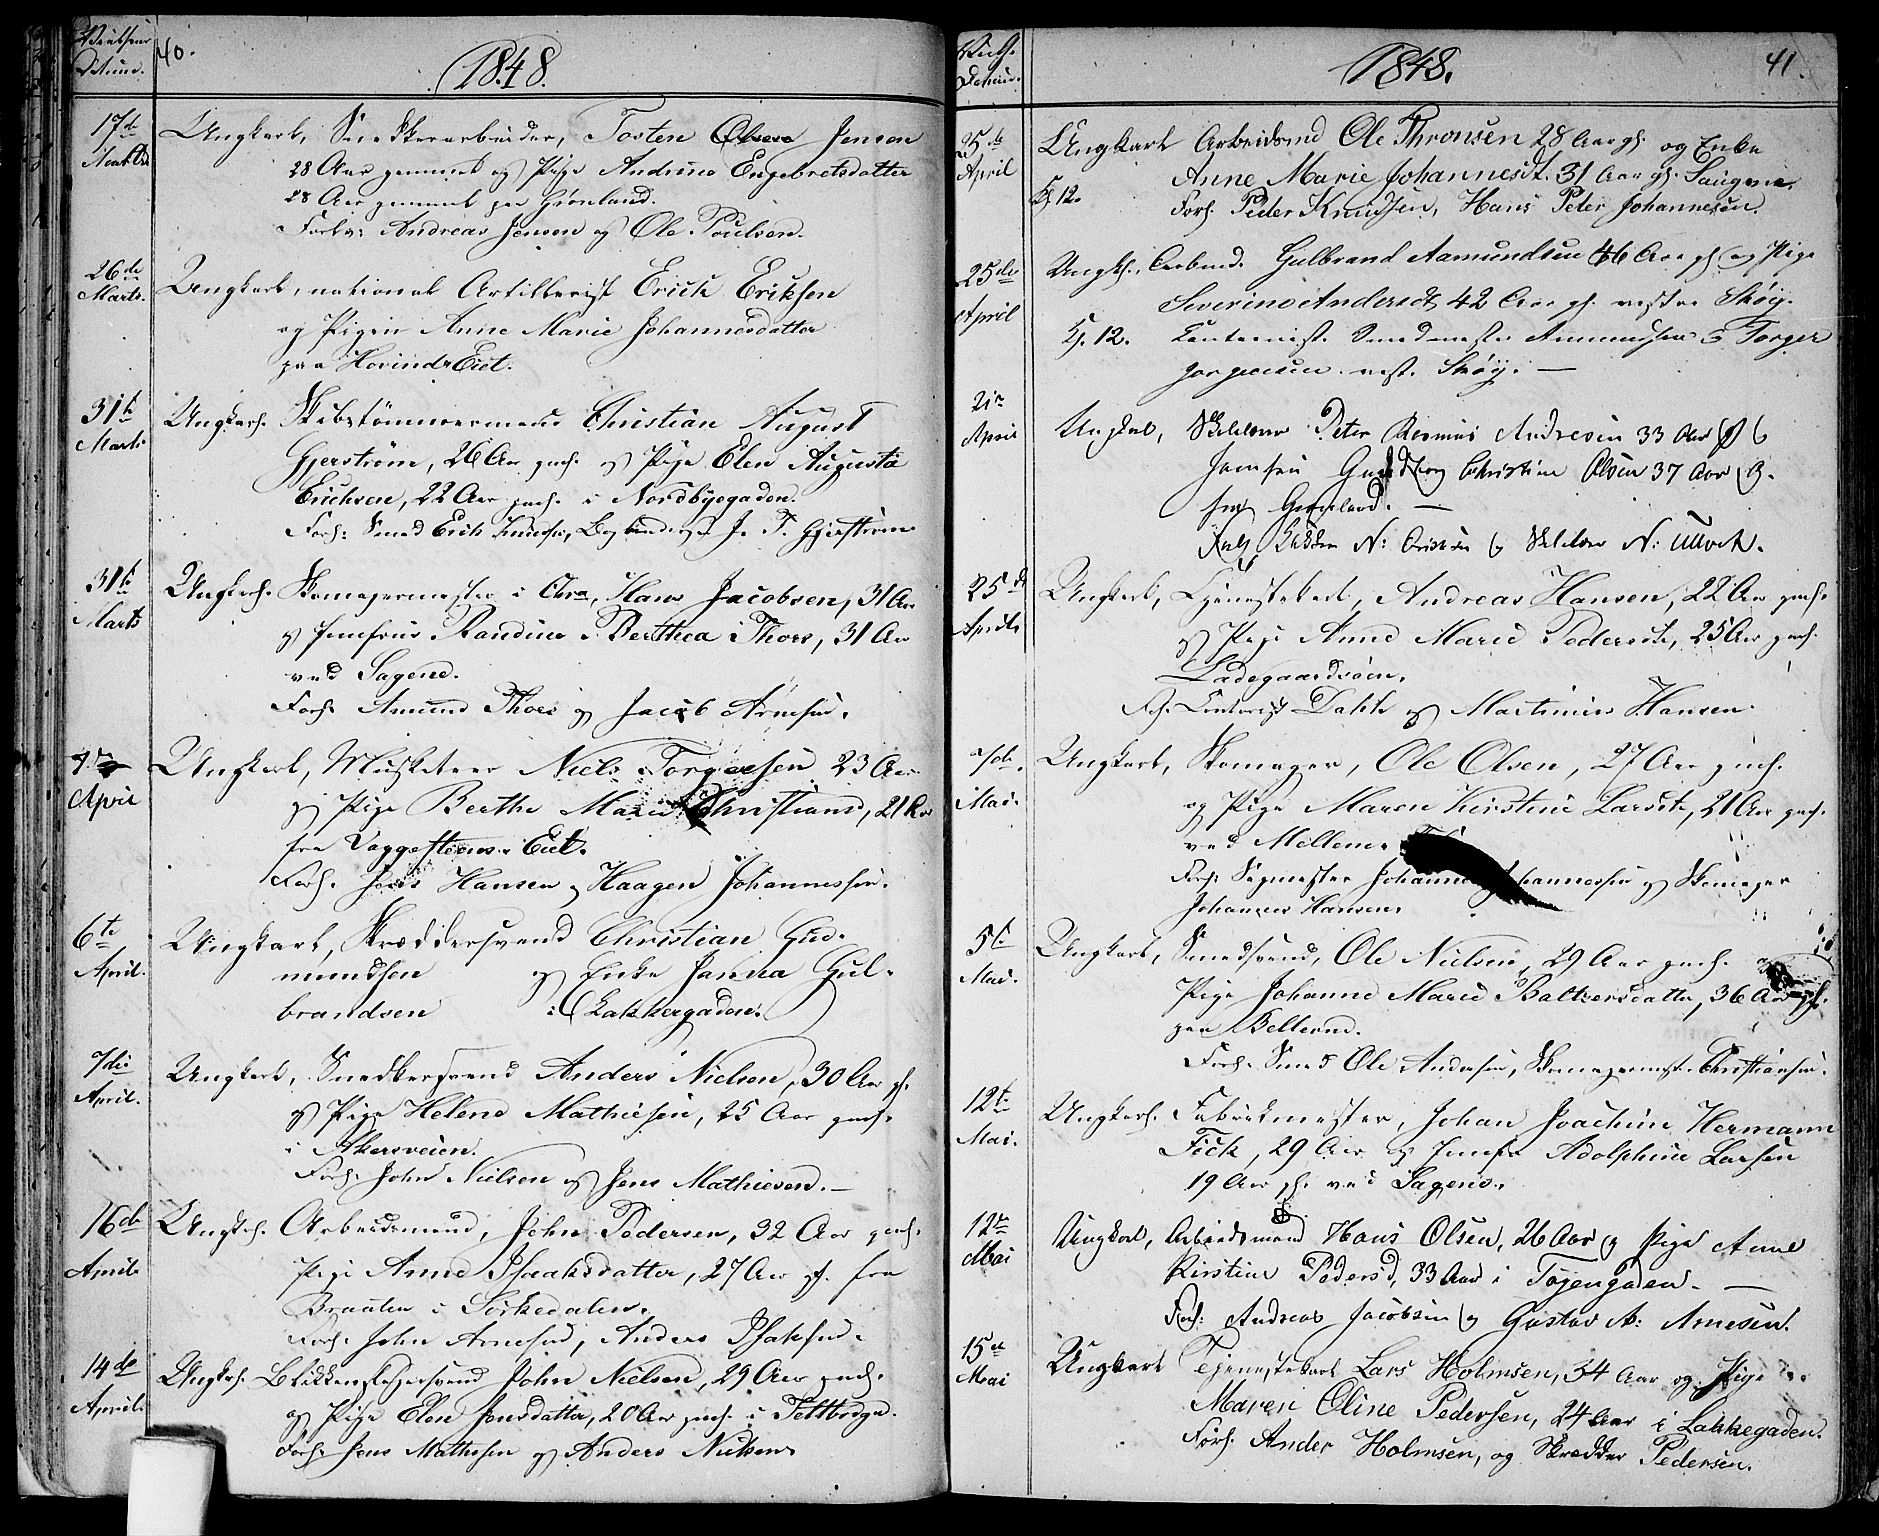 40.
1848.
17de
Ungkarl, Snedkerarbeider, Torsten Jensen
28 Aar gammel og Pige Andrine Engebretsdatter
28 Aar gammel paa Grønland.
Forlv: Andreas Jensen og Ole Poulsen.
26de
Marts.
Ungkarl, national Artillerist Erich Eriksen
og Pigen Anne Marie Johannesdatter
paa Hovinds Eiet.
31te
Marts
Ungkarl. Skibstømmermand Christian August
Gjerström, 26 Aar gmh. og Pige Elen Augusta
Erichsen, 22 Aar gmh. i Nordbygaden.
Forl: Smed Erik Knudsen, Bogbinder J. F. Gjerstrøm
31te
Marts
Ungkarl. Skomagermester i Chra, Hans Jacobsen, 31 Aar
og Jomfrue Randine Berthea Thors, 31 Aar
ved Sagene.
Forl. Amund Thors og Jacob Arnesen.
April
Ungkarl, Musketeer Niels Torgersen 23 Aar
og Pige Berthe Marie Christians, 21 Aar
fra Vaggesteens Eiet.
Forl. Jens Hansen og Haagen Johannessen.
6te
April.
Ungkarl, Skræddersvend Christian Gud-
mundsen og Enke Janna Gul-
brandsen i Lakkergaden.
7de
April.
Ungkarl, Snedkersvend Anders Nielsen, 30 Aar gl.
og Pige Helene Mathiesen, 25 Aar gmh.
i Akersveien.
Forl. John Nielsen og Jens Mathiesen.
16de
April
Ungkl. Arbeidsmand, John Pedersen, 32 Aar gmh.
Pige Anne Isaaksdatter, 27 Aar gl. fra
Braaten i Sørkedalen.
Forl. John Arnesen, Anders Isaksen.
14de
April
Ungkarl. Blikkenslagersvend John Nielsen, 29 Aar gmh.
og Pige Elen Jensdatter, 20 Aar gmh. i Feltbyge.
Forl. Jens Mathesen og Anders Nielsen
41.
1848.
25de
April
§ 12.
Ungkarl Arbeidsmd Ole Thronsen 28 Aar gl. og Enke
Anne Marie Johannesdt. 31 Aar gl. Saugene.
Forl. Peder Knudsen, Hans Peter Johannesen.
25de
April
§. 12.
Ungk., Arbmd. Gulbrand Aamundsen 46 Aar gl. og Pige
Severine Andersdt, 42 Aar gl. vestre Skøy.
Smedmester Ammundsen & Torger
Jørgensen. vest. Skøy. —
21de
April
Ungkarl, Peter Rasmus Andresen 33 Aar og
Jomfru Christine Olsen 37 Aar G.
paa Grønland. —
25de
April
Ungkarl, Tjenestekarl, Andreas Hansen, 22 Aar gmh.
og Pige Anne Marie Pedersdt, 25 Aar gmh.
Ladegaardsøen.
Fl. Dahl og Martinius Hansen.
7de
Mai.
Ungkarl, Skomager, Ole Olsen, 27 Aar gmh.
og Pige Maren Kirstine Larsdt, 21 Aar gmh.
ved Møllene.
Forl: Sagmester Johannes Johannessen og Skomager
Johannes Hansen.
5te
Mai.
Ungkarl, Smedsvend, Ole Nielsen, 29 Aar gmh.
Pige Johanne Marie Baltzersdatter, 36 Aar gl.
paa Bellerne.
Forl. Smed Ole Andersen, Skomagermst. Christiansen.
12te
Mai.
Ungkarl. Fabrikmester, Johan Joachim Hermann
Fick, 29 Aar og Jomfru Adolphine Larsen
19 Aar gl. ved Sagene.
12te
Mai
Ungkarl, Arbeidsmand Hans Olsen, 26 Aar og Pige Anne
Kirstine Pedersd, 33 Aar i Tøyengaden. —
Forl: Andreas Jacobsen og Gustav A: Arnesen.
15de
Mai
Ungkarl Tjenestekarl Lars Holmsen, 34 Aar og Pige
Maren Oline Pedersen, 24 Aar i Lakkegaden.
Forl. Ander Holmsen, og Skrædder Pedersen.